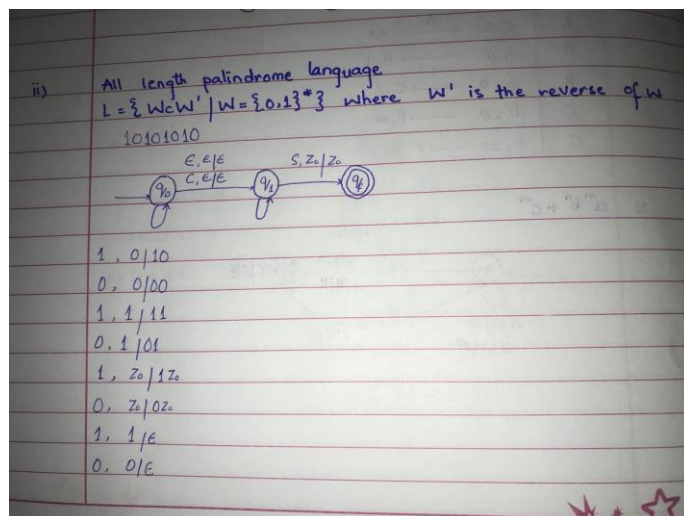 ii) All length palindrome language
L = { WcW' | W = {0,1}* } where W' is the reverse of W
10101010
ϵ, ϵ/ϵ
C, ϵ/ϵ
S, Z₀/Z₀
q₀ q₁ qf
1, 0/10
0, 0/00
1, 1/11
0, 1/01
1, Z₀/1Z₀
0, Z₀/0Z₀
1, 1/ϵ
0, 0/ϵ